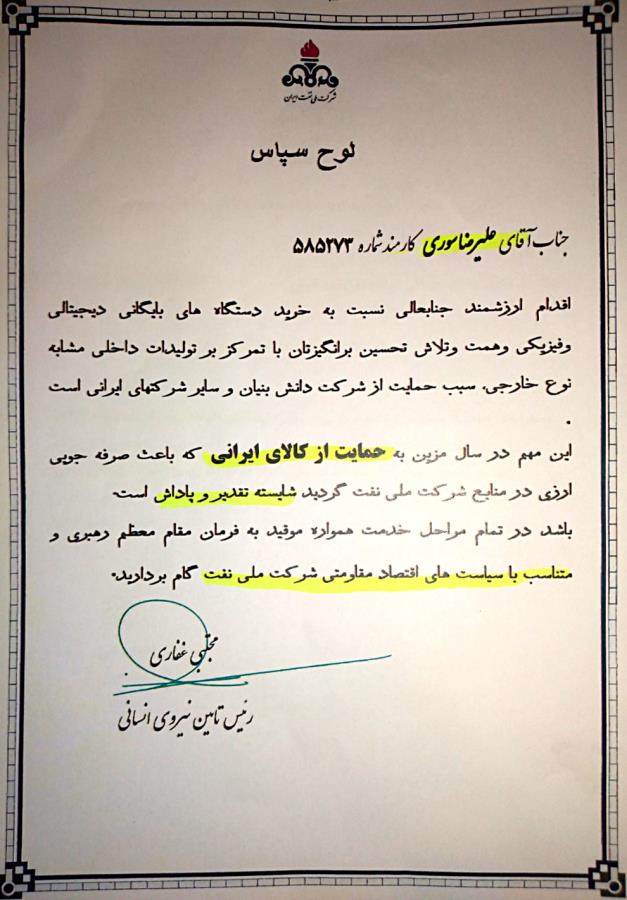 شرکت ملی نفت ایران
لوح سپاس
جناب آقای علیرضا سوری کارمند شماره ۵۸۵۲۷۳
اقدام ارزشمند جنابعالی نسبت به خرید دستگاه های بایگانی دیجیتالی
وفیزیکی وهمت وتلاش تحسین برانگیزتان با تمرکز بر تولیدات داخلی مشابه
نوع خارجی، سبب حمایت از شرکت دانش بنیان و سایر شرکتهای ایرانی است
.
این مهم در سال مزین به حمایت از کالای ایرانی که باعث صرفه جویی
ارزی در منابع شرکت ملی نفت گردید شایسته تقدیر و پاداش است.
باشد در تمام مراحل خدمت همواره موفید به فرمان مقام معظم رهبری و
متناسب با سیاست های اقتصاد مقاومتی شرکت ملی نفت گام بردارید.
مجتبی غفاری
رئیس تامین نیروی انسانی